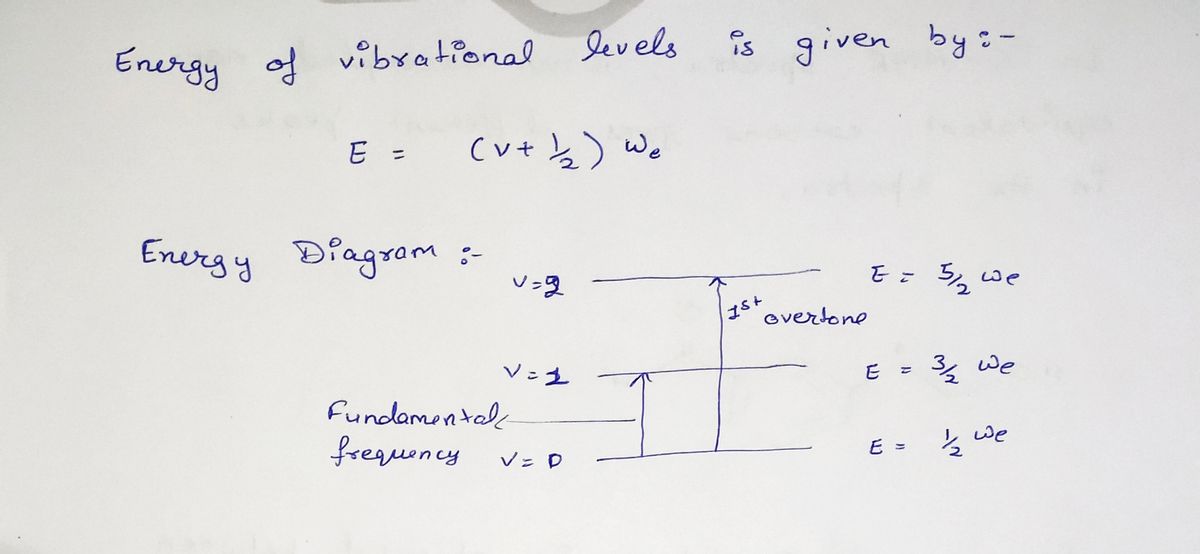 Energy of vibrational levels is given by :-
E = (v + 1/2) we
Energy Diagram :-
v=2 E = 5/2 we
1st overtone
v=1 E = 3/2 we
Fundamental
frequency v=0 E = 1/2 we